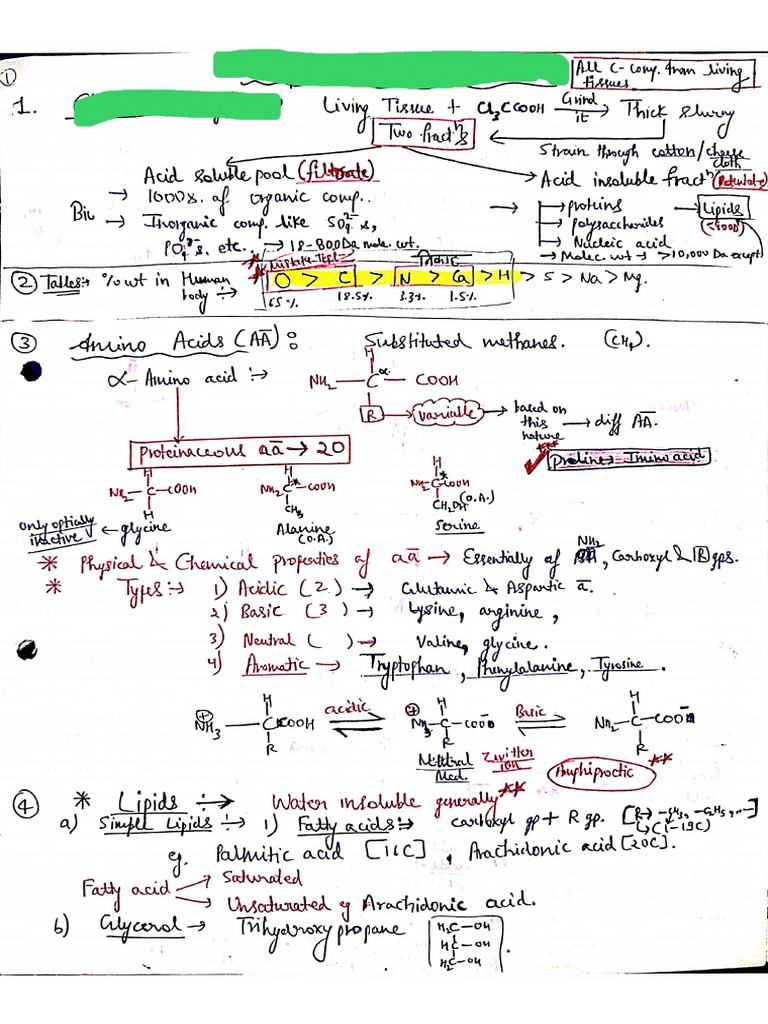 ①
All C-comp. from living tissues.
1. Living Tissue + Cl₃CCOOH —Grind it→ Thick slurry
Two fractⁿs
Strain through cotton/cheese cloth
Acid soluble pool (filtrate)
Acid insoluble fractⁿ (Retentate)
→ 1000s of organic comp..
→ Inorganic comp. like SO₄²⁻s,
PO₄³⁻s. etc., → 18-800Da mole. wt.
→ proteins → Lipids (<800D)
→ polysaccharides
→ Nucleic acid
→ Molec. wt → >10,000 Da except
② Tables:→ % wt in Human body :→
O > C > N > Ca > H > S > Na > Mg.
65.% 18.5% 3.3% 1.5%
③ Amino Acids (AA): Substituted methanes. (CH₄).
α-Amino acid :→
H
NH₂ — Cα — COOH
R → variable → based on this nature → diff AA.
Proteinaceous aa → 20
** Proline → Imino acid
H H H
NH₂ — C — COOH NH₂ — C* — COOH NH₂ — C* — COOH
H CH₃ CH₂OH (O.A.)
only optially inactive ← glycine Alanine (O.A.) Serine
* Physical & Chemical properties of aa → Essentially of NH₂, Carboxyl & R gps.
* Types :→ 1) Acidic (2) → Glutamic & Aspartic a.
2) Basic (3) → Lysine, arginine,
3) Neutral ( ) → Valine, glycine.
4) Aromatic → Tryptophan, Phenylalanine, Tyrosine.
H H H
⊕NH₃ — C COOH ⇌ acidic ⊕NH₃ — C — COO⁻ ⇌ Basic NH₂ — C — COO⁻
R R R
Neutral Med. Zwitter ion Amphiprotic **
④ * Lipids :→ Water insoluble generally **
a) Simple Lipids :→ 1) Fatty acids :→ carboxyl gp + R gp. [R→ -CH₃, -C₂H₅, ...]
↳ C(1-19C)
eg. Palmitic acid [16C], Arachidonic acid [20C].
Fatty acid → Saturated
→ Unsaturated eg Arachidonic acid.
b) Glycerol → Trihydroxy propane
H₂C — OH
HC — OH
H₂C — OH.